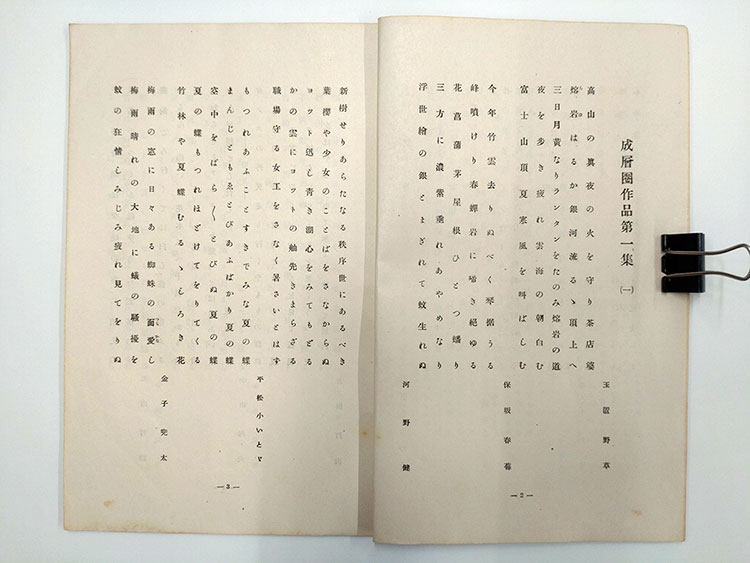 成層圏作品第一集 (一)
高山の眞夜の火を守り茶店婆
熔岩はるか銀河流るゝ頂上へ
三日月黄なりランタンをたのみ熔岩の道
夜を歩き疲れ雲海の朝白む
富士山頂夏寒風を叫ばしむ
玉置野草
今年竹雲去りぬべく琴据うる
峰噴けり春蟬岩に啼き絶ゆる
花菖蒲茅屋根ひとつ蟠り
三方に濃紫垂れあやめなり
保坂春苺
浮世繪の銀とまぎれて蚊生れぬ
河野健
―2―
新樹せりあらたなる秩序世にあるべき
葉櫻や少女のことばをさなからぬ
ヨット迅し靑き湖心をみてもどる
かの雲にヨットの舳先きまらざる
職場守る女工をさなく暑さいとはず
もつれあふことすきでみな夏の蝶
まんじともゑとびあふばかり夏の蝶
空中をばら〱とびぬ夏の蝶
夏の蝶もつれほどけてをりてくる
竹林や夏蝶むるゝしろき花
平松小いとゞ
梅雨の窓に日々ある蜘蛛の面愛し
梅雨晴れの大地に蟻の騒擾を
蚊の狂情しみじみ疲れ見てをりぬ
金子兜太
―3―